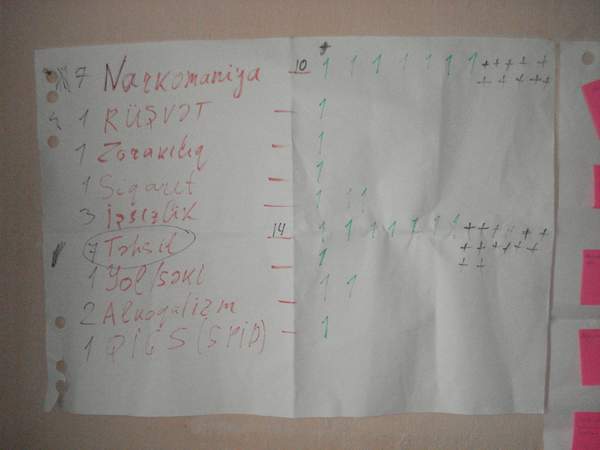 7 Narkomaniya 10 1 1 1 1 1 1 1 + + + + +
+ + + + +
1 RÜŞVƏT — 1
1 Zorakılıq — 1
1 Siqaret — 1
3 İşsizlik — 1 1 1
7 Təhsil 14 1 1 1 1 1 1 1 + + + + + +
1 Yol/səki — 1 + + + + + +
+ +
2 Alkoqalizm — 1 1
1 QİÇS (SPİD) — 1